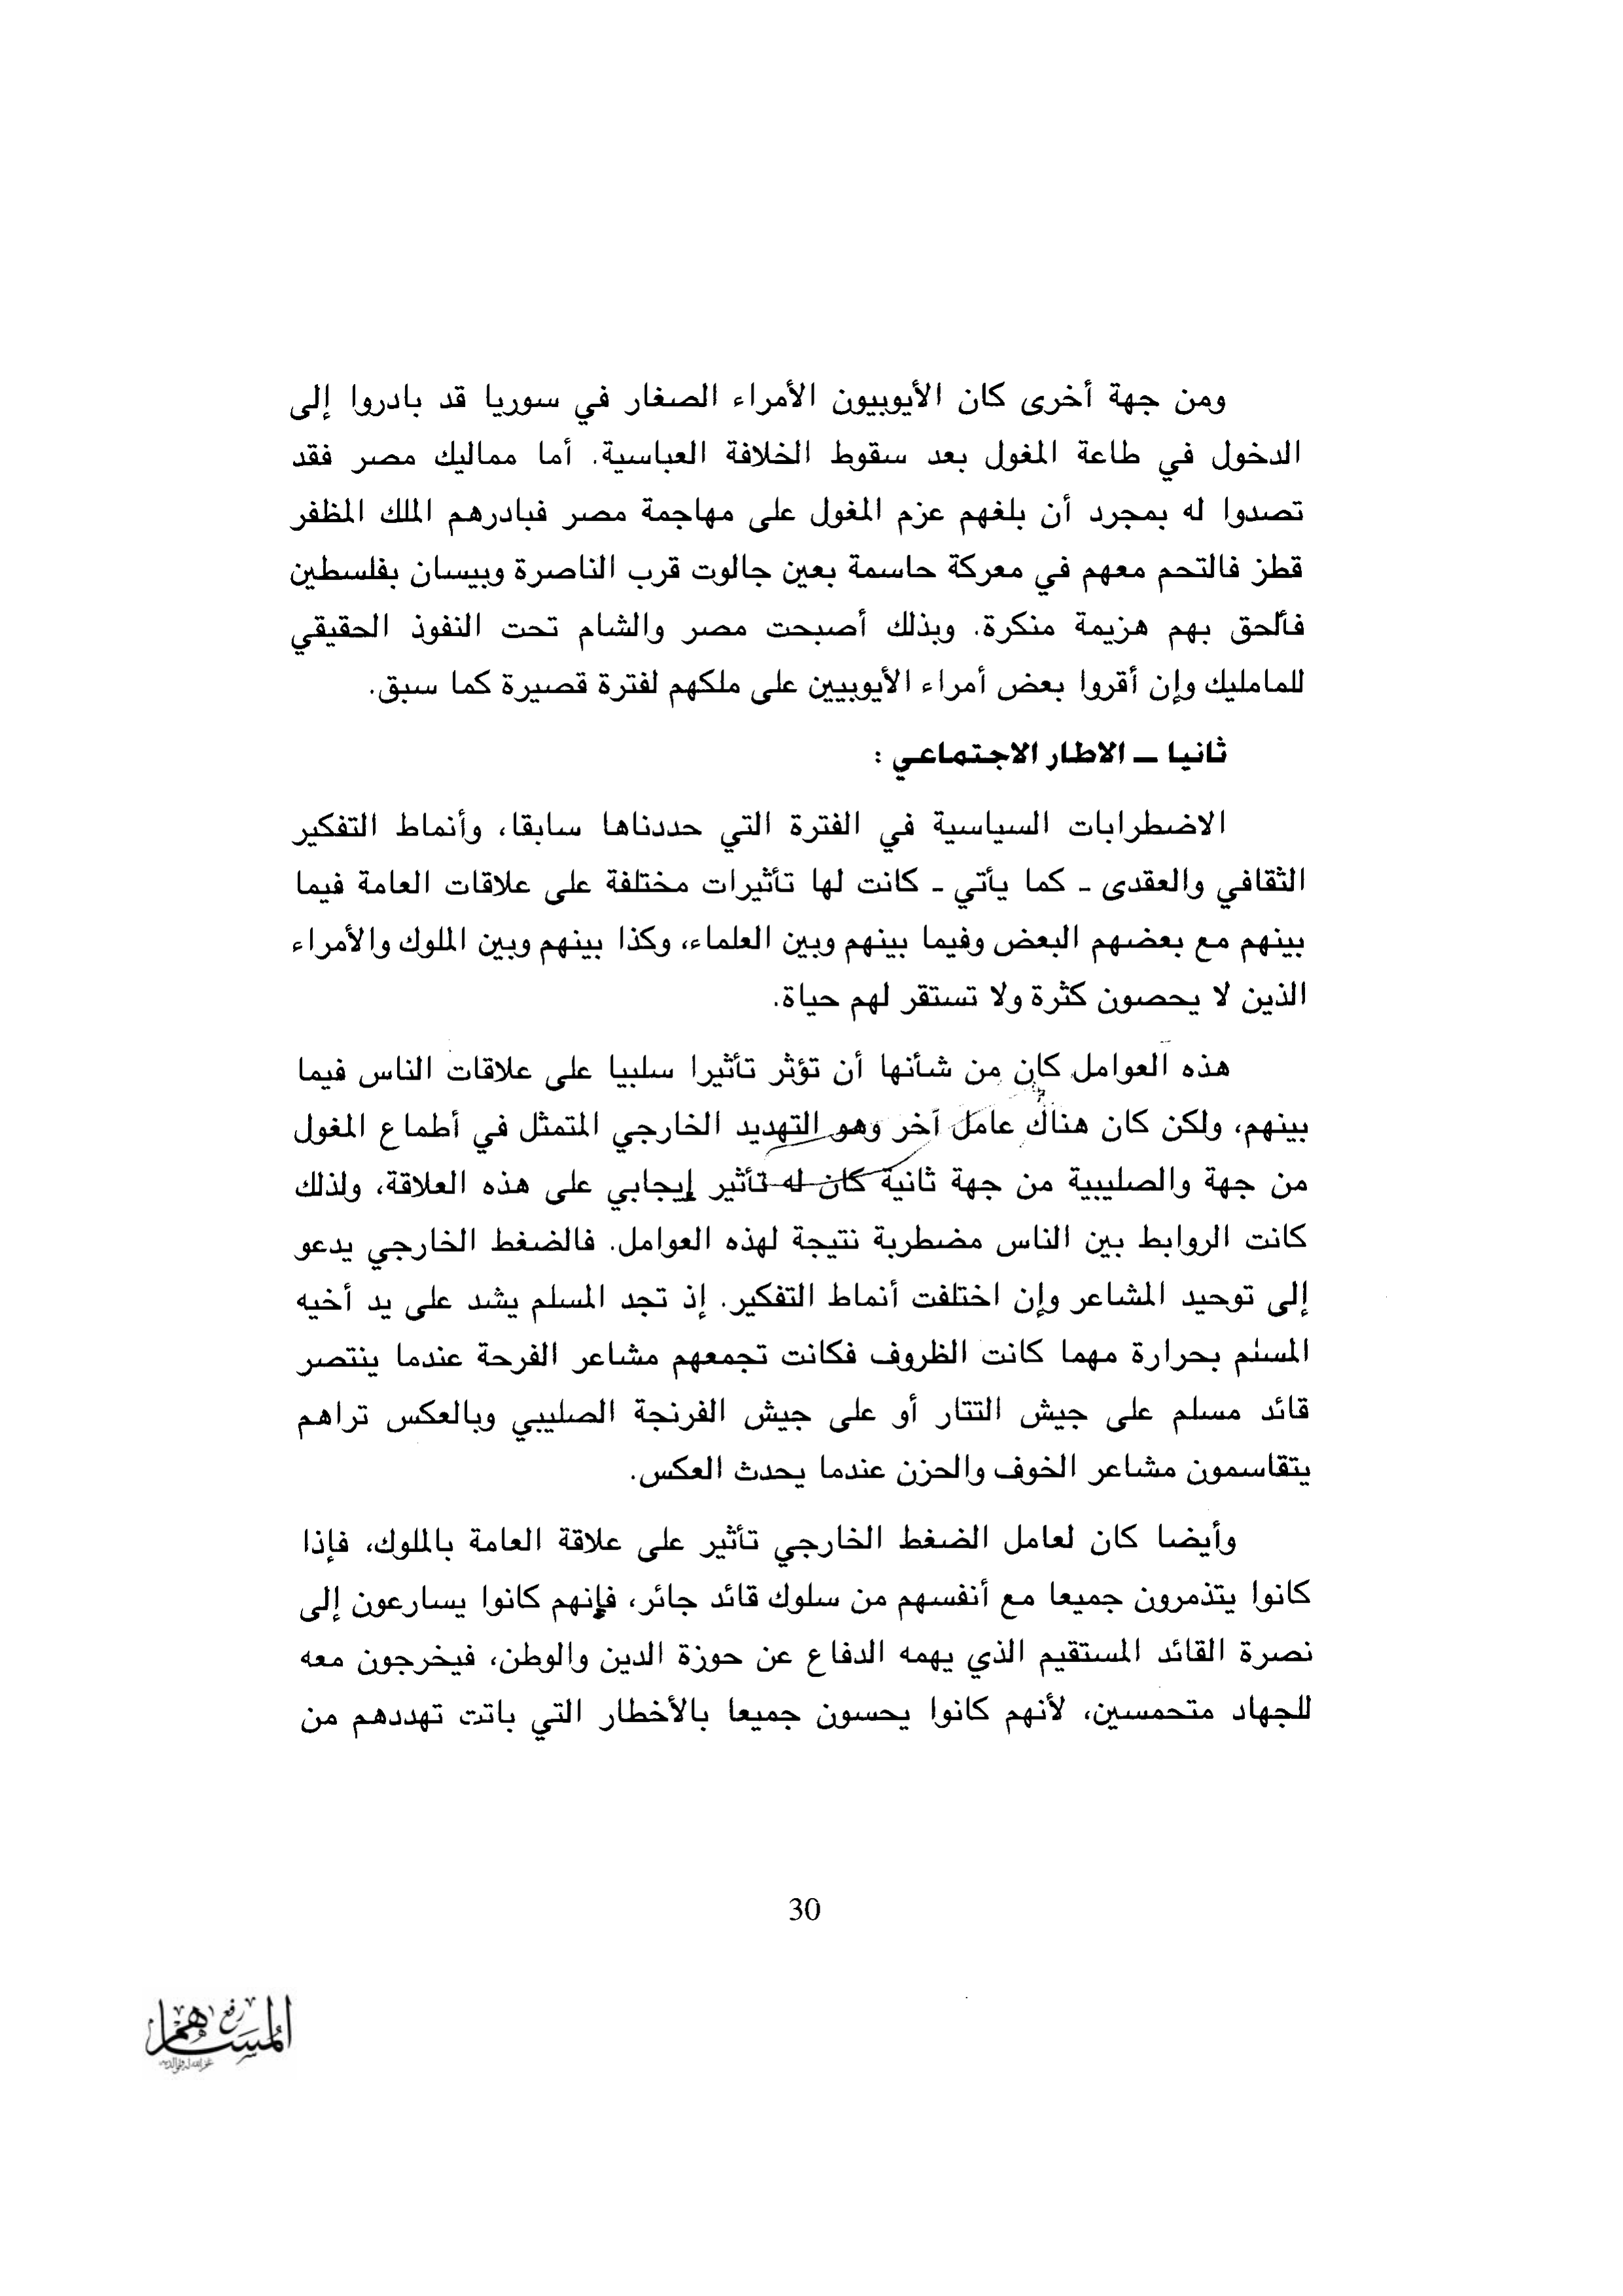 ومن جهة أخرى كان الأيوبيون الأمراء الصغار في سوريا قد بادروا إلى
الدخول في طاعة المغول بعد سقوط الخلافة العباسية. أما مماليك مصر فقد
تصدوا له بمجرد أن بلغهم عزم المغول على مهاجمة مصر فبادرهم الملك المظفر
قطز فالتحم معهم في معركة حاسمة بعين جالوت قرب الناصرة وبيسان بفلسطين
فألحق بهم هزيمة منكرة. وبذلك أصبحت مصر والشام تحت النفوذ الحقيقي
للمامليك وإن أقروا بعض أمراء الأيوبيين على ملكهم لفترة قصيرة كما سبق.
ثانيا – الاطار الاجتماعي :
الاضطرابات السياسية في الفترة التي حددناها سابقا، وأنماط التفكير
الثقافي والعقدى - كما يأتي - كانت لها تأثيرات مختلفة على علاقات العامة فيما
بينهم مع بعضهم البعض وفيما بينهم وبين العلماء، وكذا بينهم وبين الملوك والأمراء
الذين لا يحصون كثرة ولا تستقر لهم حياة.
هذه العوامل كان من شأنها أن تؤثر تأثيرا سلبيا على علاقات الناس فيما
بينهم، ولكن كان هناك عامل آخر وهو التهديد الخارجي المتمثل في أطماع المغول
من جهة والصليبية من جهة ثانية كان له تأثير إيجابي على هذه العلاقة، ولذلك
كانت الروابط بين الناس مضطربة نتيجة لهذه العوامل. فالضغط الخارجي يدعو
إلى توحيد المشاعر وإن اختلفت أنماط التفكير. إذ تجد المسلم يشد على يد أخيه
المسلم بحرارة مهما كانت الظروف فكانت تجمعهم مشاعر الفرحة عندما ينتصر
قائد مسلم على جيش التتار أو على جيش الفرنجة الصليبي وبالعكس تراهم
يتقاسمون مشاعر الخوف والحزن عندما يحدث العكس.
وأيضا كان لعامل الضغط الخارجي تأثير على علاقة العامة بالملوك، فإذا
كانوا يتذمرون جميعا مع أنفسهم من سلوك قائد جائر، فإنهم كانوا يسارعون إلى
نصرة القائد المستقيم الذي يهمه الدفاع عن حوزة الدين والوطن، فيخرجون معه
للجهاد متحمسين، لأنهم كانوا يحسون جميعا بالأخطار التي باتت تهددهم من
30
رفع
المساهم